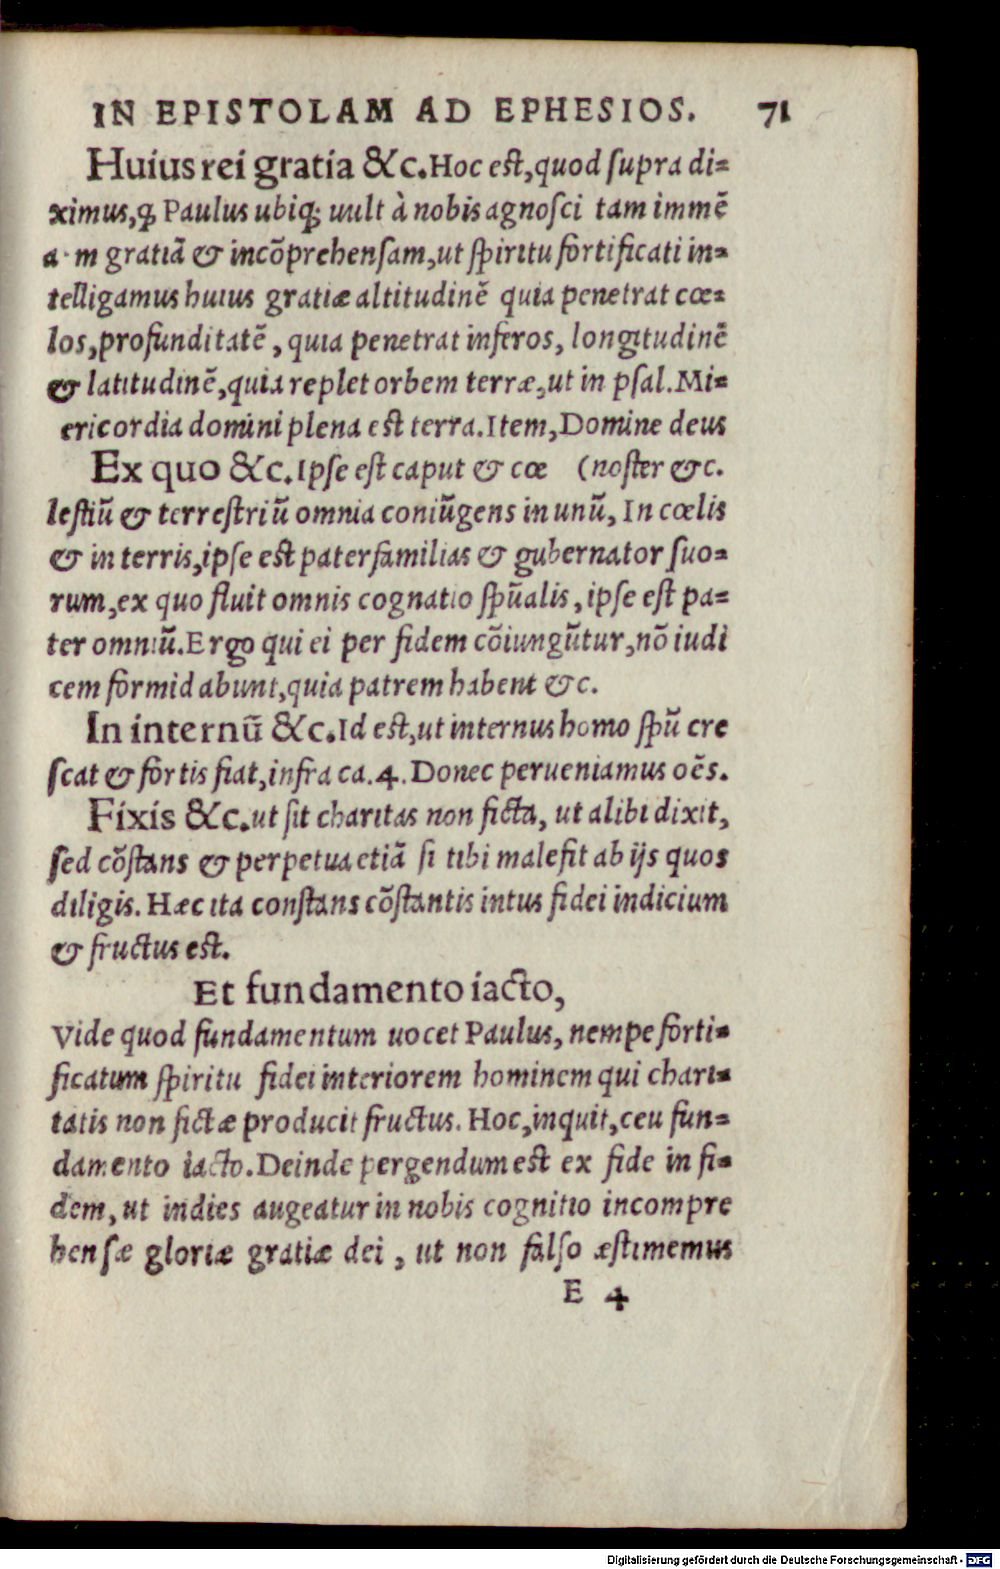 IN EPISTOLAM AD EPHESIOS. 71
Huius rei gratia &c. Hoc est, quod supra di=
ximus, ꝙ Paulus ubiqꝫ uult à nobis agnosci tam immē
gratiā & incōprehensam, ut spiritu fortificati in=
telligamus huius gratiæ altitudinē quia penetrat cœ=
los, profunditatē, quia penetrat inferos, longitudinē
& latitudinē, quia replet orbem terræ, ut in psal. Mi=
ericordia domini plena est terra. Item, Domine deus
Ex quo &c. Ipse est caput & cœ (noster &c.
lestiū & terrestriū omnia coniūgens in unū, In cœlis
& in terris, ipse est paterfamilias & gubernator suo=
rum, ex quo fluit omnis cognatio spūalis, ipse est pa=
ter omniū. Ergo qui ei per fidem cōiungūtur, nō iudi
cem formidabunt, quia patrem habent &c.
In internū &c. Id est, ut internus homo spū cre
scat & fortis fiat, infra ca. 4. Donec perueniamus oēs.
Fixis &c. ut sit charitas non ficta, ut alibi dixit,
sed cōstans & perpetua etiā si tibi malefit ab ijs quos
diligis. Hæc ita constans cōstantis intus fidei indicium
& fructus est.
Et fundamento iacto,
Vide quod fundamentum uocet Paulus, nempe forti=
ficatum spiritu fidei interiorem hominem qui chari=
tatis non fictæ producit fructus. Hoc, inquit, ceu fun=
damento iacto. Deinde pergendum est ex fide in fi=
dem, ut indies augeatur in nobis cognitio incompre
hensæ gloriæ gratiæ dei, ut non falso æstimemus
E 4
Digitalisierung gefördert durch die Deutsche Forschungsgemeinschaft - DFG